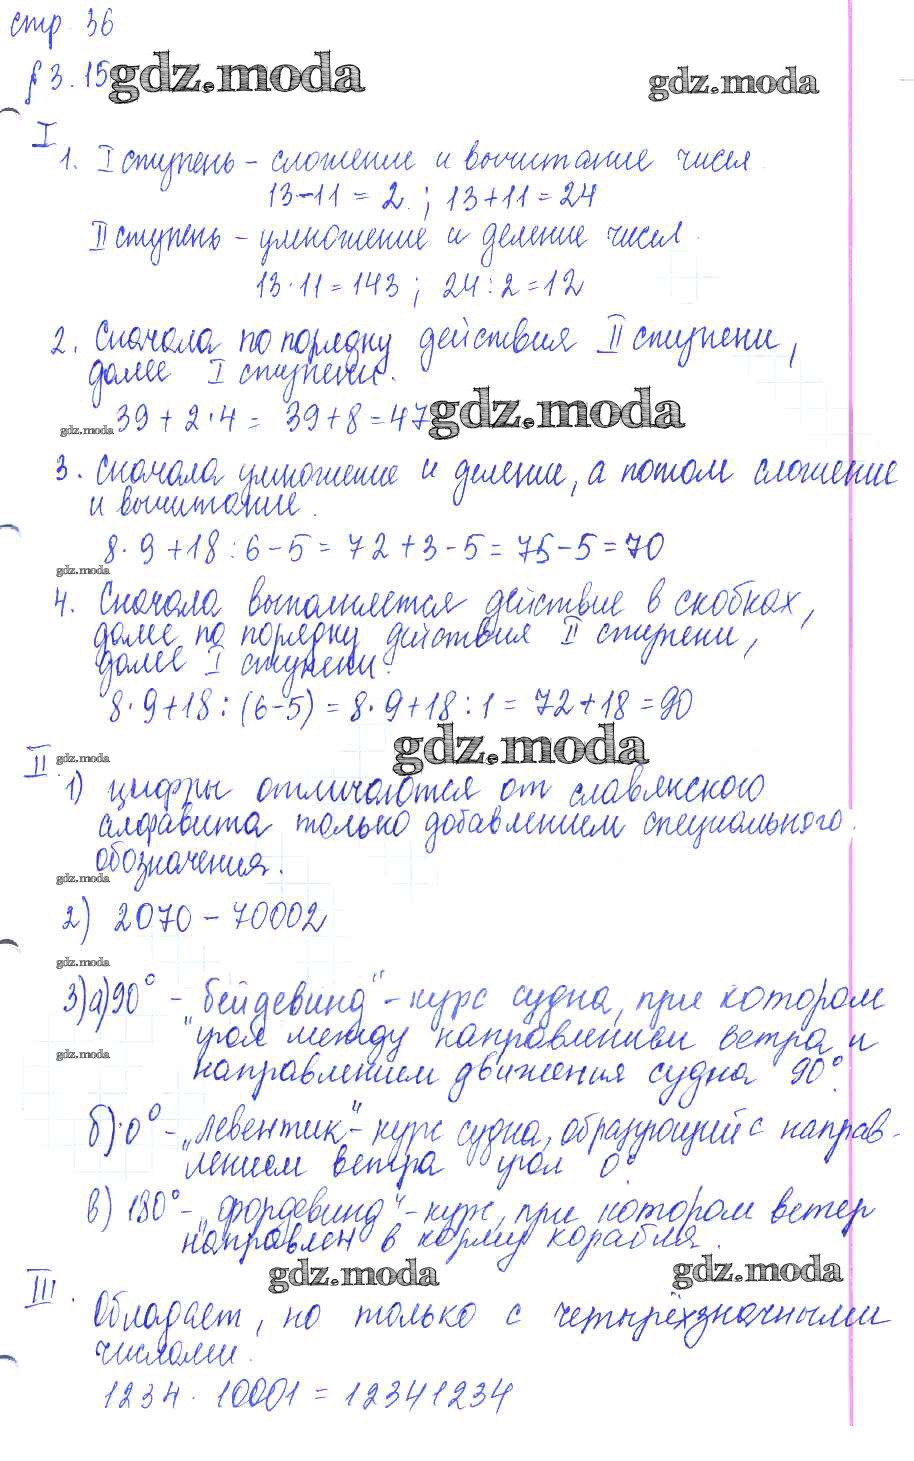 стр. 36
§ 3.15 gdz.moda gdz.moda
I
1. I ступень - сложение и вычитание чисел.
13-11 = 2. ; 13+11 = 24
II ступень - умножение и деление чисел.
13·11 = 143 ; 24:2=12
2. Сначала по порядку действия II ступени,
далее I ступени.
gdz.moda 39 + 2·4 = 39+8=47 gdz.moda
3. Сначала умножение и деление, а потом сложение
и вычитание.
8·9+18:6-5=72+3-5=75-5=70
gdz.moda
4. Сначала выполняется действие в скобках,
далее по порядку действия II ступени,
далее I ступени.
8·9+18:(6-5)=8·9+18:1=72+18=90
II gdz.moda gdz.moda
1) цифры отличаются от славянского
алфавита только добавлением специального
обозначения.
gdz.moda
2) 2070 - 70002
gdz.moda
3) а) 90° - "бейдевинд" - курс судна, при котором
угол между направлением ветра и
gdz.moda
направлением движения судна 90°.
б) 0° - „левентик" - курс судна, образующий с направ-
лением ветра угол 0°.
в) 180° - „фордевинд" - курс, при котором ветер
направлен в корму корабля.
gdz.moda gdz.moda
III.
Обладает, но только с четырёхзначными
числами.
1234 · 10001 = 12341234